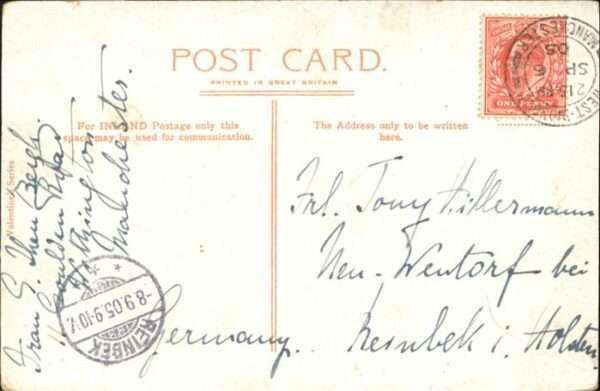 POST CARD.
PRINTED IN GREAT BRITAIN
For INLAND Postage only this
space may be used for communication.
The Address only to be written
here.
Valentine's Series
ONE PENNY
MANCHESTER
2 15 PM
SP 6
05
Frl. Tony Hillermann
Neu-Wentorf bei
Reinbek i. Holstein
Germany.
Frau G.
Road
Withington
Manchester.
REINBEK
-8.9.05.9-10V.